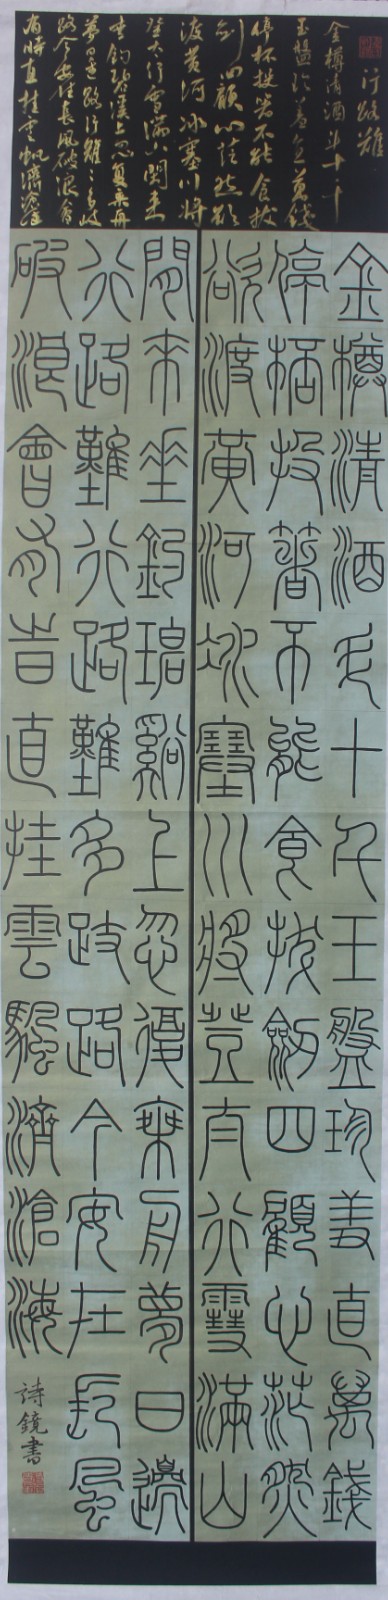 行路難
金樽清酒斗十千
玉盤珍羞直萬錢
停杯投箸不能食拔
劍四顧心茫然欲
渡黃河冰塞川將
登太行雪滿山閒來
垂釣碧溪上忽復乘舟
夢日邊行路難〻多歧
路今安在長風破浪會
有時直挂雲帆濟滄海
金樽清酒斗十千玉盤珍羞直萬錢
停桮投箸不能食拔劍四顧心茫然
欲渡黃河冰塞川將登太行雪滿山
閒來垂釣碧谿上忽復乘舟夢日邊
行路難行路難多歧路今安在長風
破浪會有旹直挂雲颿濟滄海
詩鏡書